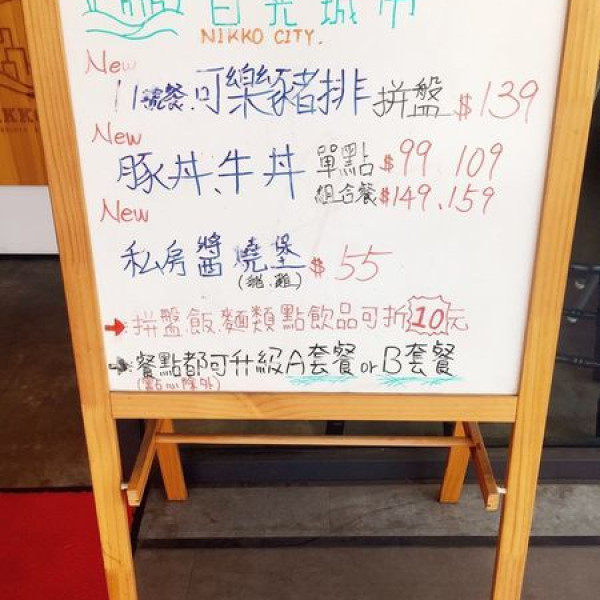 日光城市
NIKKO CITY.
New
11號餐.可樂豬排拼盤 $139
New
豚丼、牛丼 單點$99.109
組合餐$149.159
New
私房醬燒堡 $55
(豬.雞)
→拼盤.飯.麵類點飲品可折10元
餐點都可升級A套餐orB套餐
(點心除外)